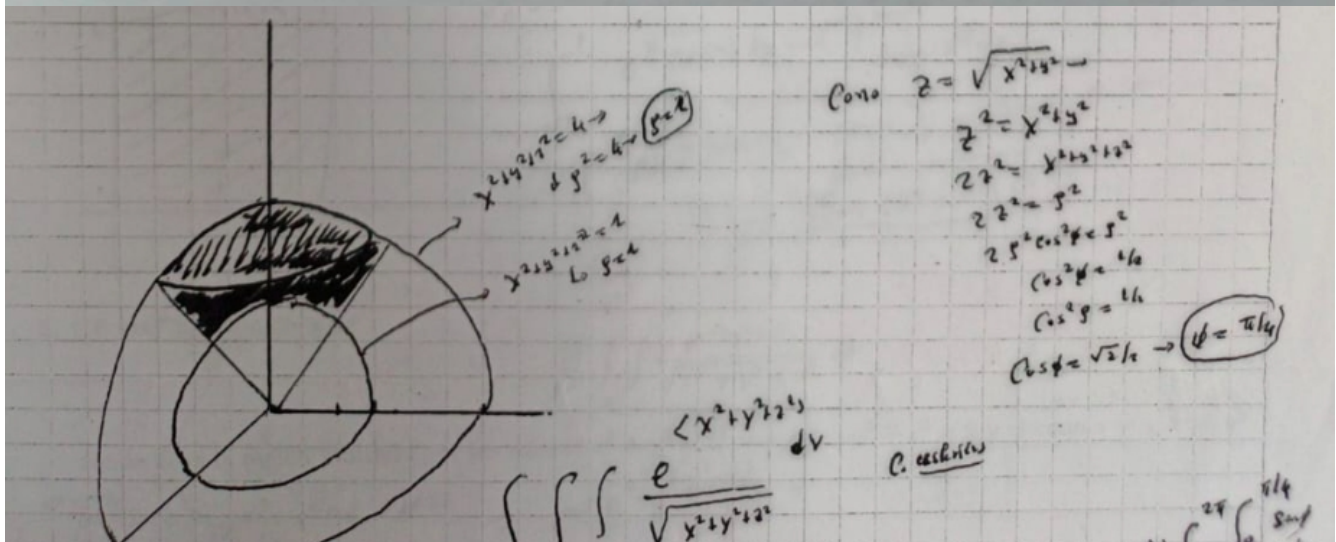 x²+y²+z²=4 →
ρ²=4 → ρ=2
x²+y²+z²=1
↳ ρ=1
Cono z = √x²+y² —
z² = x²+y²
2z² = x²+y²+z²
2z² = ρ²
2ρ²cos²ϕ = ρ²
cos²ϕ = 1/2
cos²ρ = 1/2
Cosϕ = √2/2 → ϕ = π/4
∫∫∫ e^(x²+y²+z²) / √x²+y²+z² dv
C. esféricas
∫ 2π ∫ π/4 senϕ